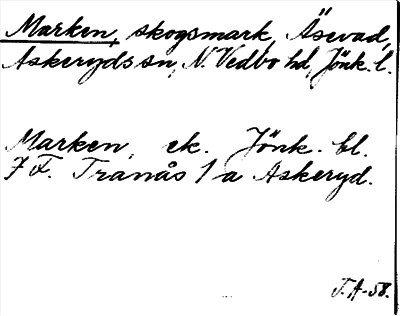 Marken, skogsmark, Äsevad,
Askeryds sn, N. Vedbo hd, Jönk. l.
Marken, ek. Jönk. bl.
7 F. Tranås 1 a Askeryd.
T. A-58.